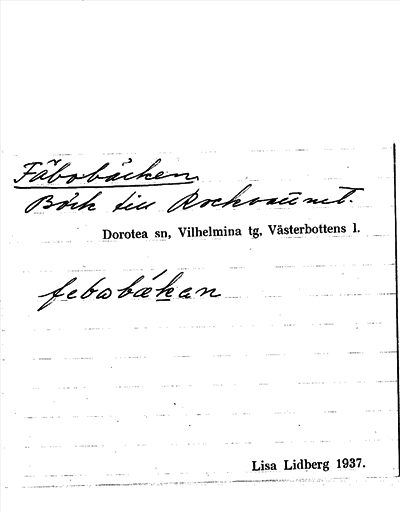 Fäbobäcken
Bäck till
Dorotea sn, Vilhelmina tg, Västerbottens l.
febobäkan
Lisa Lidberg 1937.